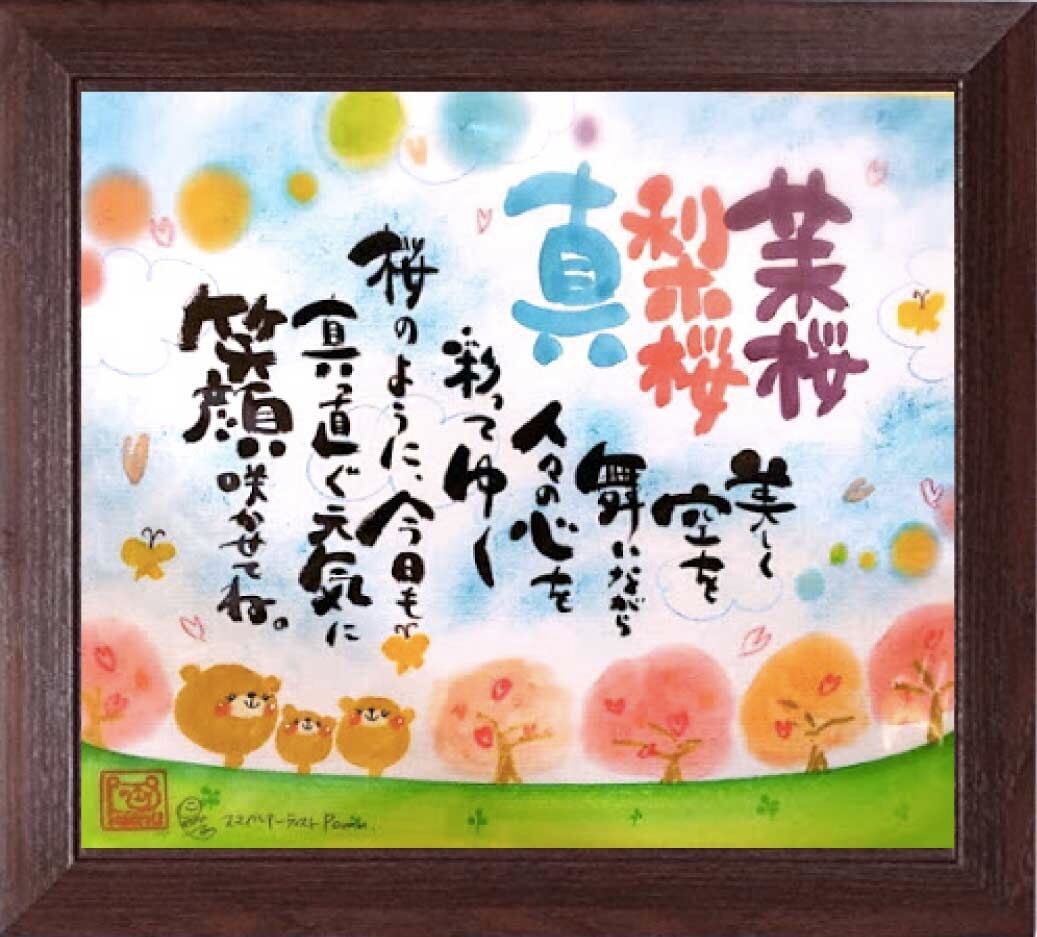 茉桜
梨桜
真
美しく
空を
舞いながら
人々の心を
彩ってゆく
桜のように、今日も
真っ直ぐ元気に
笑顔咲かせてね。
スマイルアーティスト